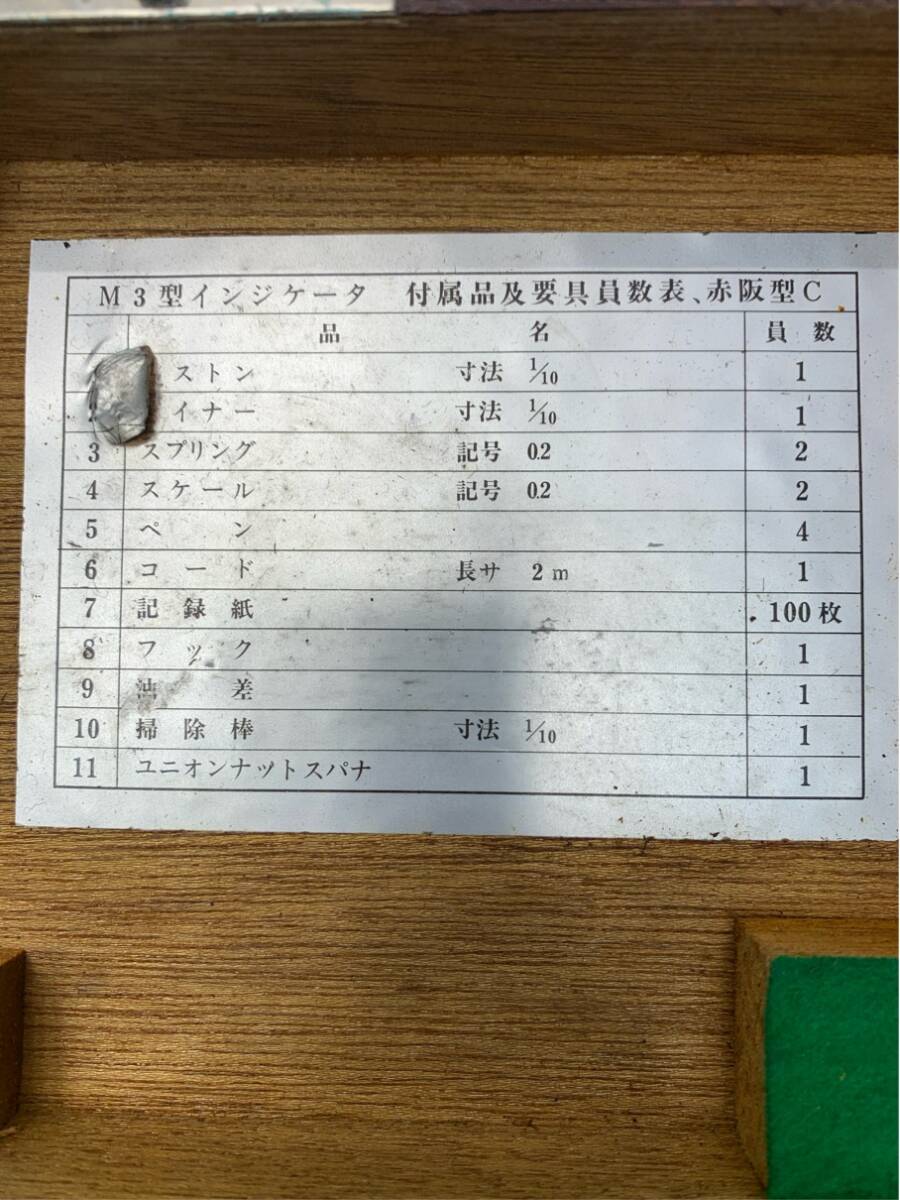 M3型インジケータ 付属品及要具員数表、赤阪型C
品 名 員数
ストン 寸法 1/10 1
2 イナー 寸法 1/10 1
3 スプリング 記号 0.2 2
4 スケール 記号 0.2 2
5 ペン 4
6 コード 長サ 2m 1
7 記録紙 .100枚
8 フック 1
9 油差 1
10 掃除棒 寸法 1/10 1
11 ユニオンナットスパナ 1